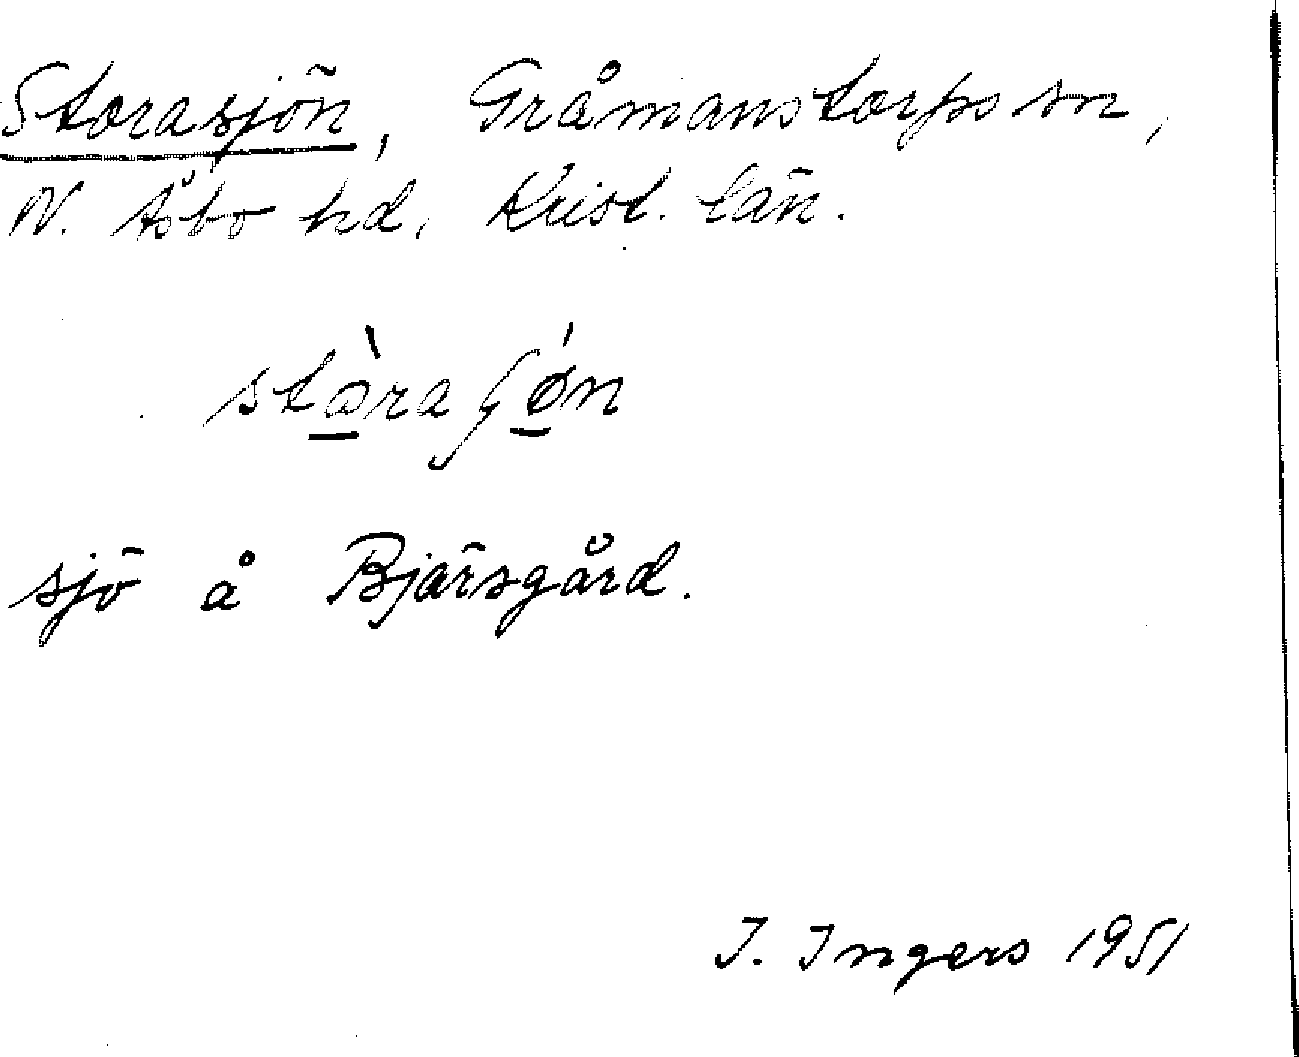 Storasjön, Gråmanstorps sn,
N. Åsbo hd, Krist. län.
stòraʃǿn
sjö å Bjärsgård.
I. Ingers 1951